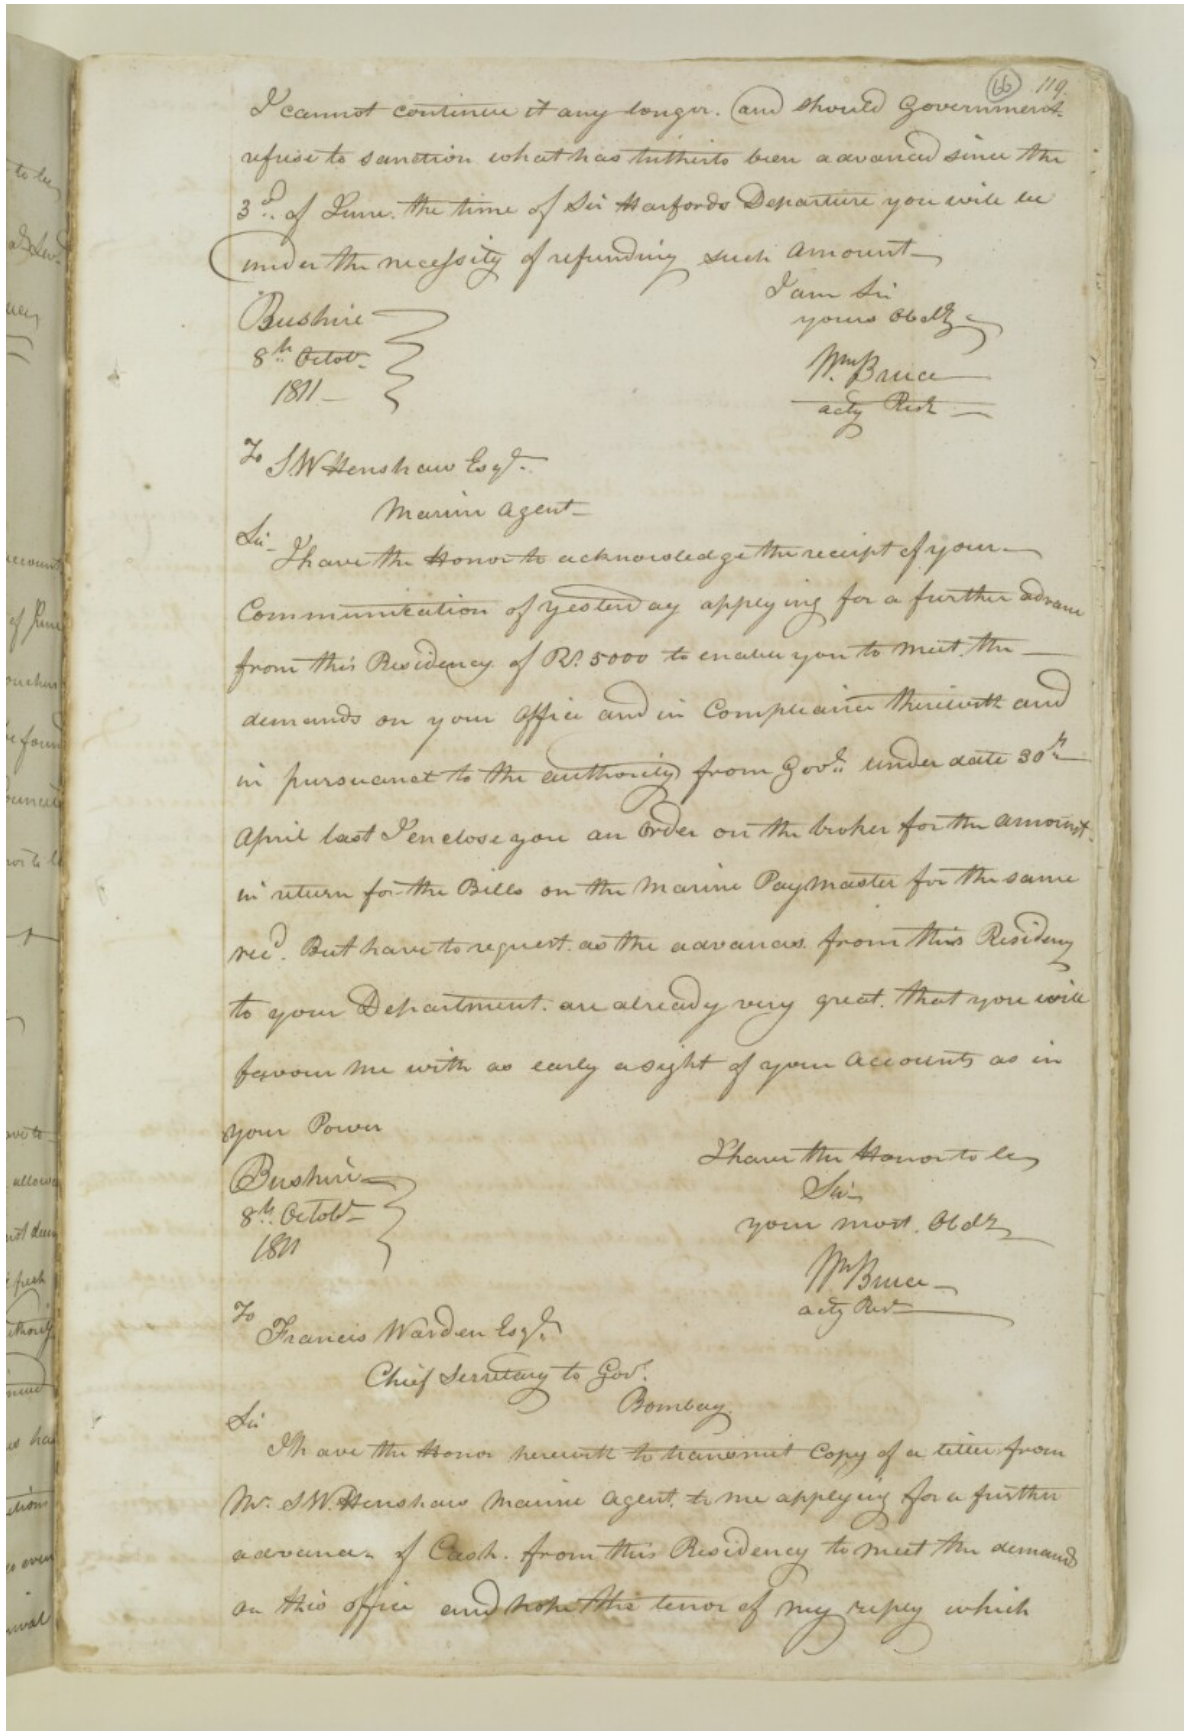 66 119.
I cannot continue it any longer. and should Government
refuse to sanction what has hitherto been advanced since the
3d. of June. the time of Sir Harfords Departure you will be
under the necessity of refunding such amount
I am Sir
yours Obdt
Bushire
8th Octobr.
1811
Wm Bruce
actg Resdt
To S.W Henshaw Esqr.
Marine Agent
Sir
I have the Honor to acknowledge the receipt of your
Communication of yesterday applying for a further advance
from this Residency of Rs. 5000 to enable you to meet the
demands on your office and in Compliance therewith and
in pursuance to the authority from Govt. under date 30th
April last I enclose you an order on the broker for the amount
in return for the Bills on the Marine Paymaster for the same
recd. But have to request as the advances from this Residency
to your Department. are already very great. that you will
favour me with as early a sight of your Accounts as in
your Power
I have the Honor to be
Sir
your most. Obdt
Bushire
8th. Octobr
1811
Wm Bruce
actg Resdt
To
Francis Warden Esqr.
Chief Secretary to Govt.
Bombay.
Sir
I have the Honor herewith to transmit Copy of a letter from
Mr. S.W. Henshaw Marine Agent. to me applying for a further
advance of Cash. from this Residency to meet the demands
on this office and hope the tenor of my reply which
to be
of June
vouchers
be found
have to
allowed
not deem
authority
even